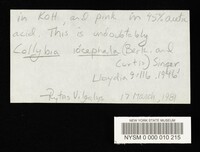 in KOH, and pink in 95% 
acid. This is undoubtedly
Collybia (Berk. and
Curtis) Singer
Lloydia 9:116. 1946
17 March,
NEW YORK STATE MUSEUM
NYSM 0 000 010 215